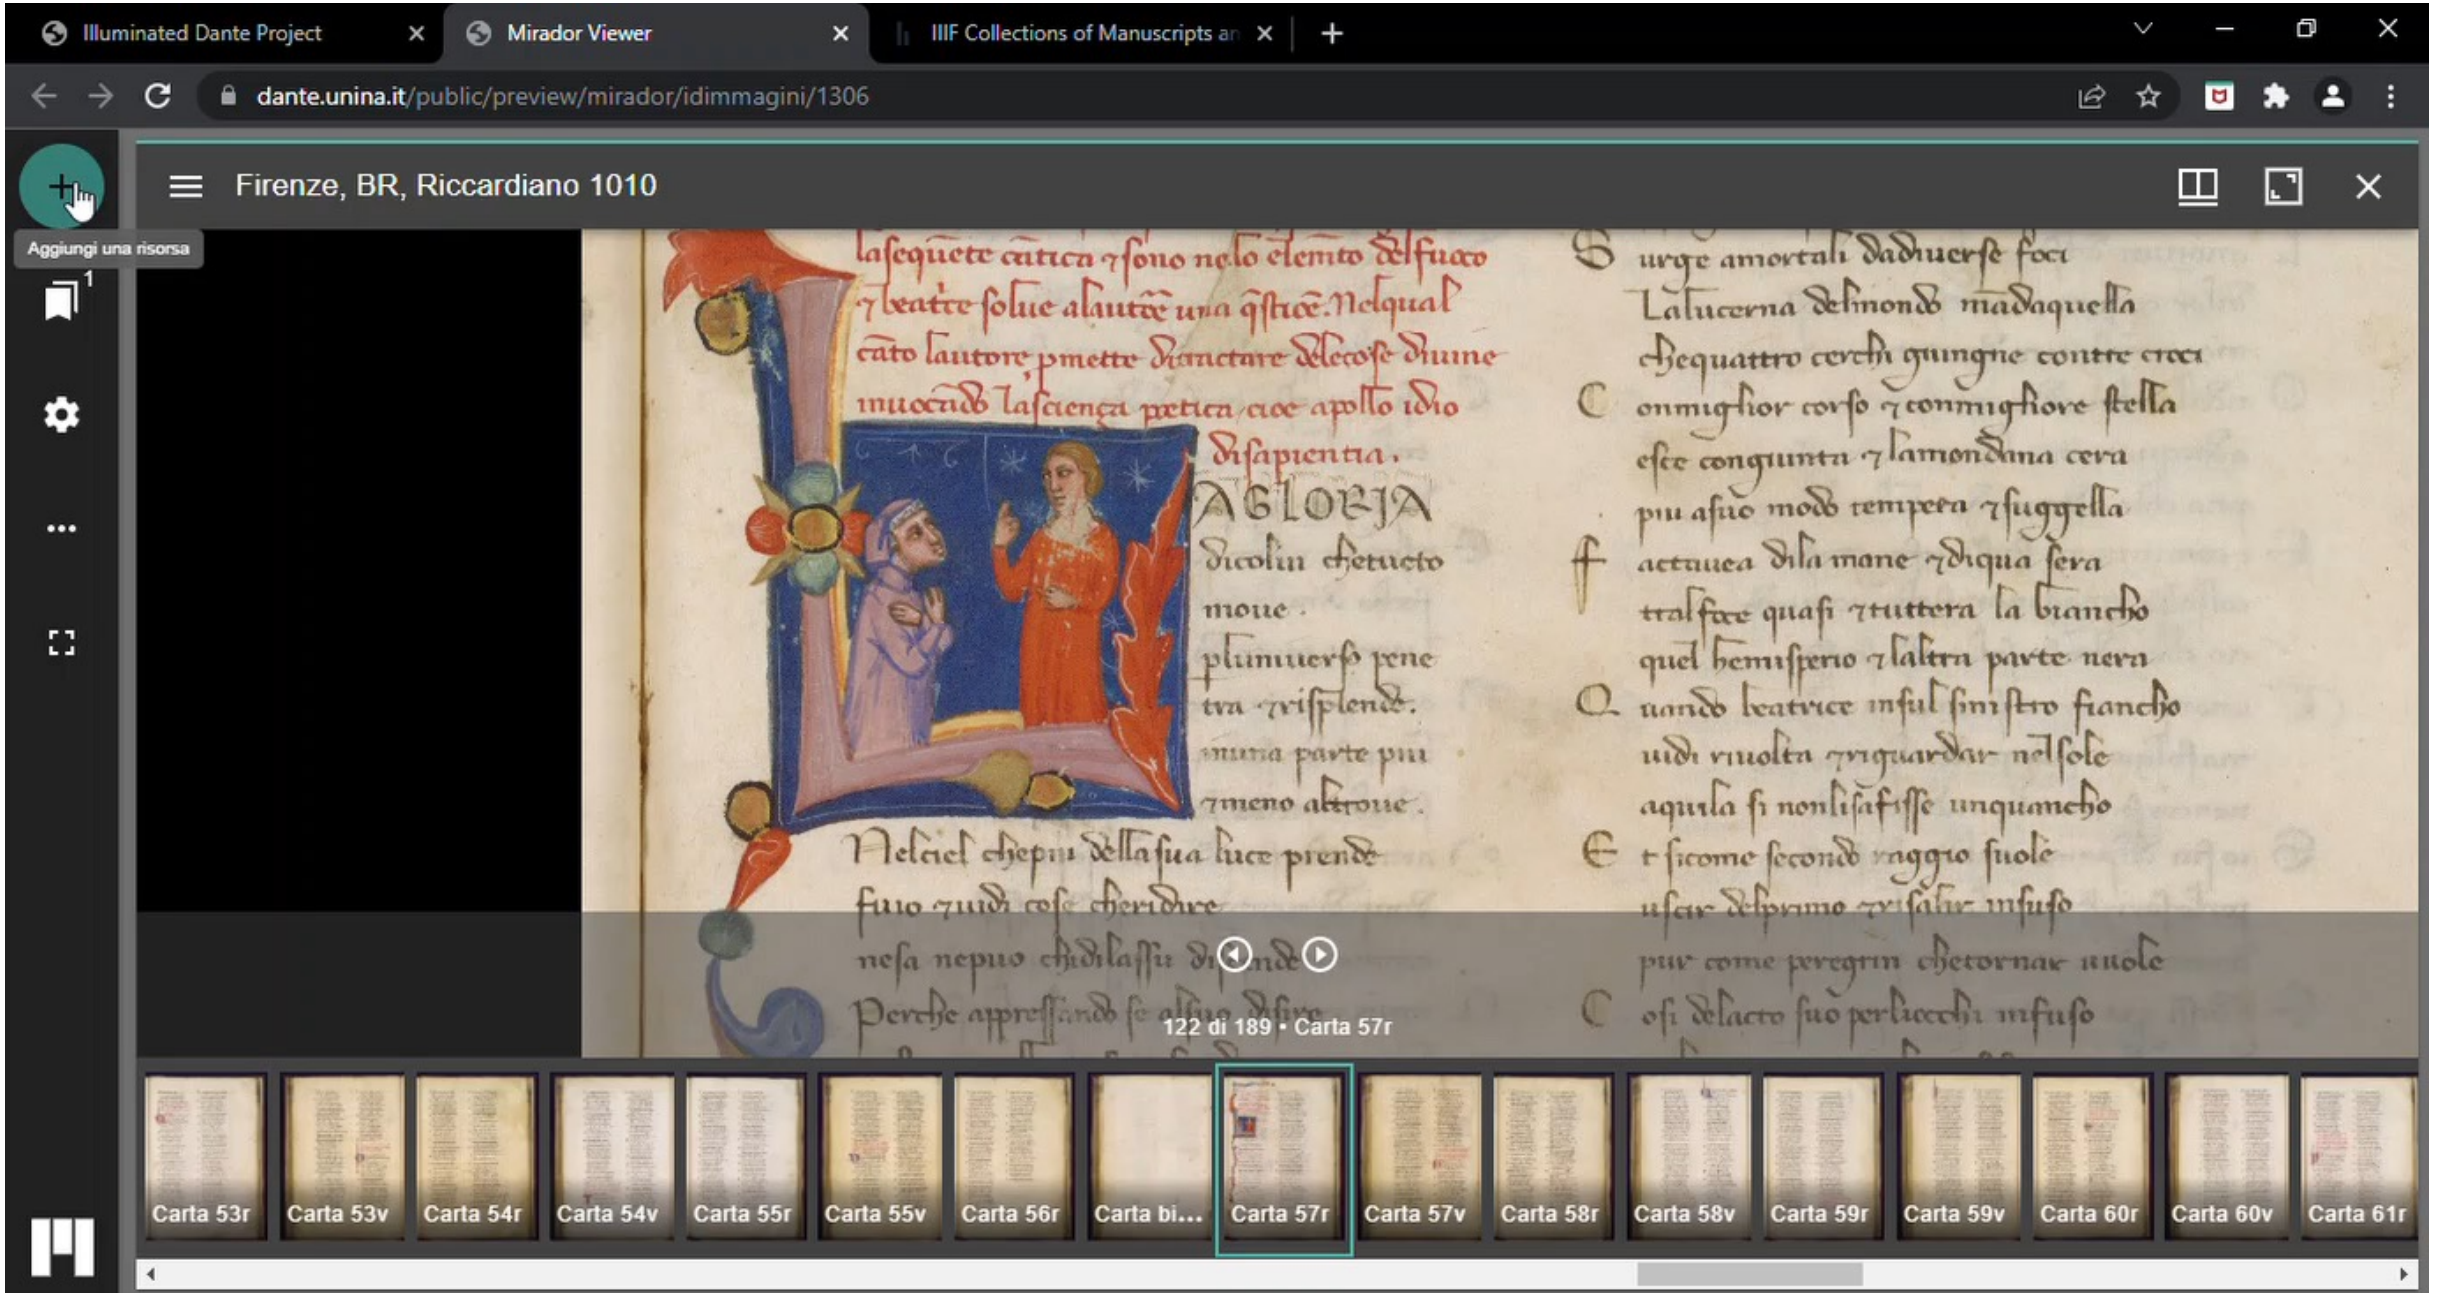 Illuminated Dante Project
Mirador Viewer
IIIF Collections of Manuscripts an
dante.unina.it/public/preview/mirador/idimmagini/1306
Firenze, BR, Riccardiano 1010
Aggiungi una risorsa
1
lasequēte cātica ⁊ sono nelo elemēto delfuoco
⁊ beatrice solue alautore una
Nelqual
cāto lautore pmette ditractare delecose diuine
inuocādo lascienza poetica cioe apollo idio
disapientia.
AGLORIA
dicolui chetucto
moue.
pluniuerso pene
tra ⁊risplende.
inuna parte piu
⁊meno altroue.
Nelciel chepiu dellasua luce prende
fuio ⁊uidi cose cheridire
nesa nepuo chidilassu
Perche appressando se alsuo disire
S urge amortali dadiuerse foci
Lalucerna delmondo mādaquella
chequattro cerchi giungne contre croci
C onmiglior corso ⁊conmigliore stella
esce congiunta ⁊lamondana cera
piu asuo modo tempera ⁊suggella
F actauea dila mane ⁊diqua sera
tal foce quasi ⁊tuttera la biancho
quel hemisperio ⁊laltra parte nera
Q uando beatrice insul sinistro fiancho
uidi riuolta ⁊riguardar nelsole
aquila si nonlisafisse unquancho
E t sicome secondo raggio suole
uscir delprimo ⁊risalir insuso
pur come peregrin chetornar uuole
C osi delacto suo perliocchi infuso
122 di 189 • Carta 57r
Carta 53r
Carta 53v
Carta 54r
Carta 54v
Carta 55r
Carta 55v
Carta 56r
Carta bi...
Carta 57r
Carta 57v
Carta 58r
Carta 58v
Carta 59r
Carta 59v
Carta 60r
Carta 60v
Carta 61r